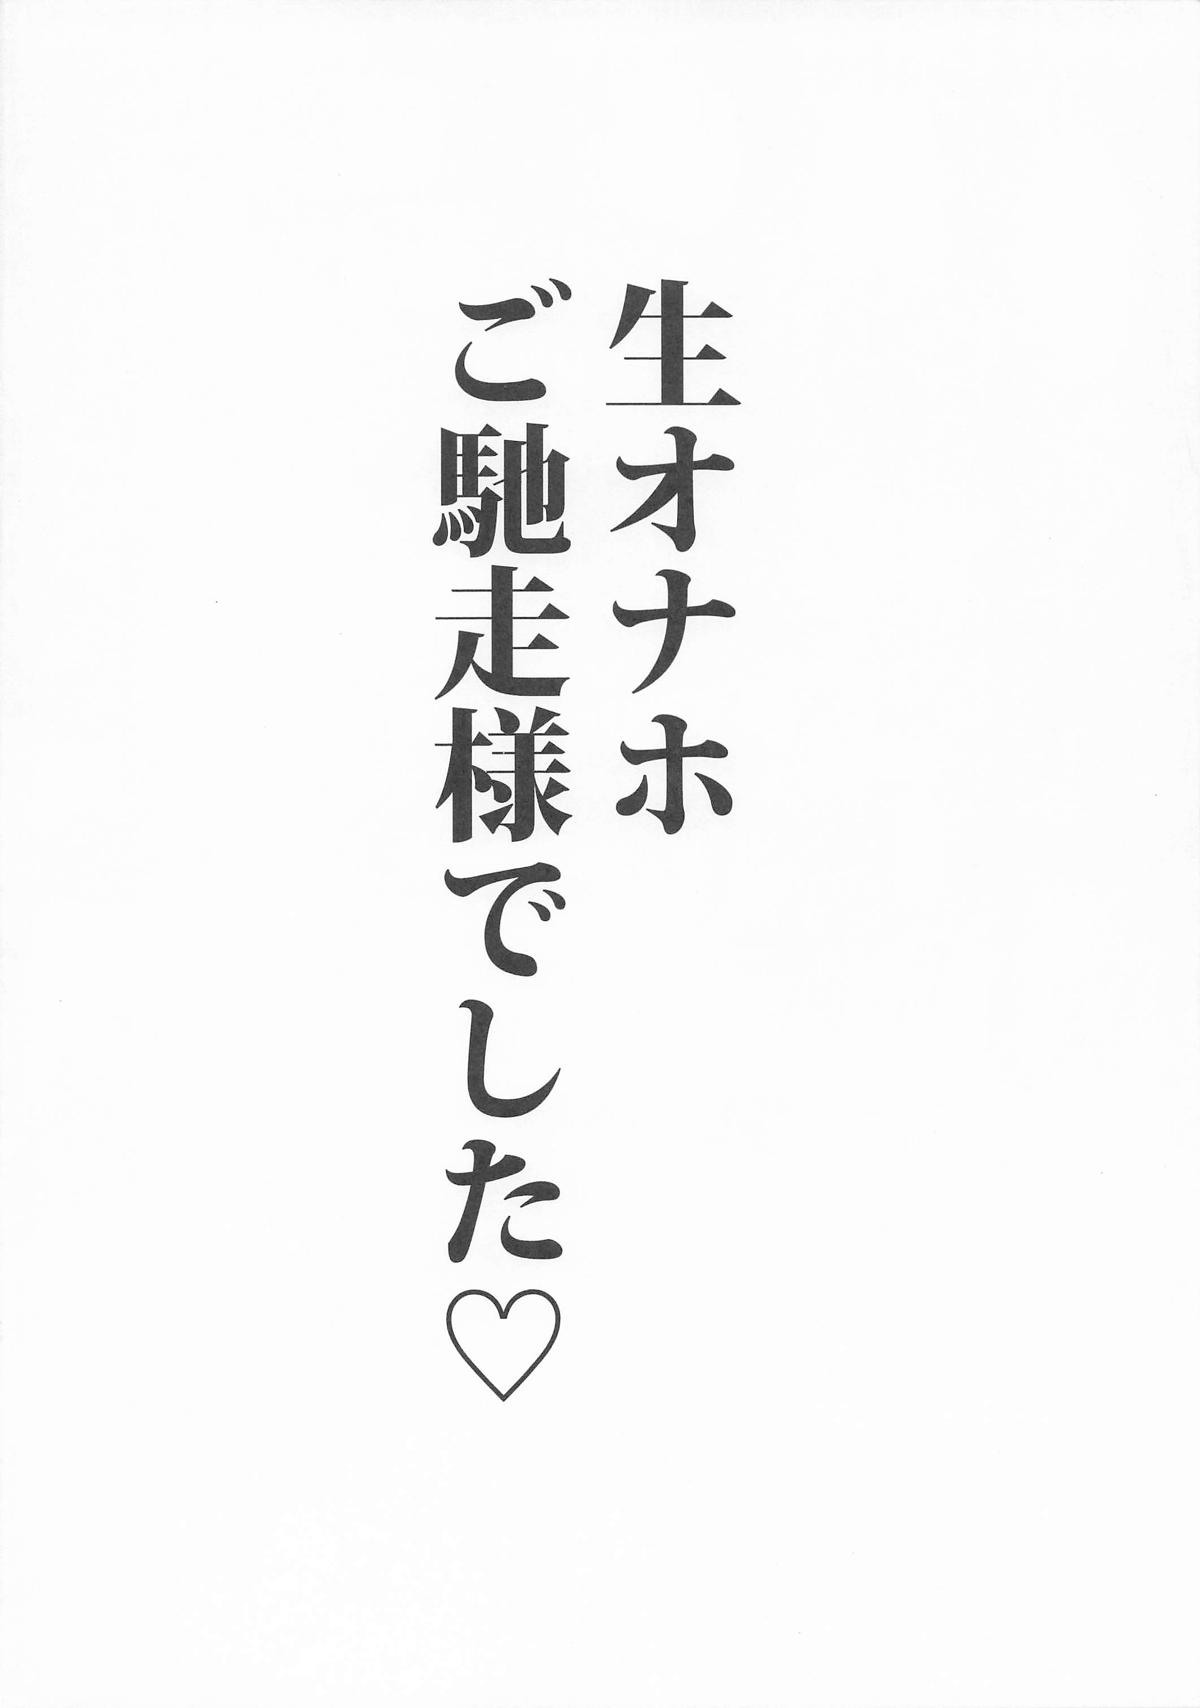 生オナホ
ご馳走様でした♡